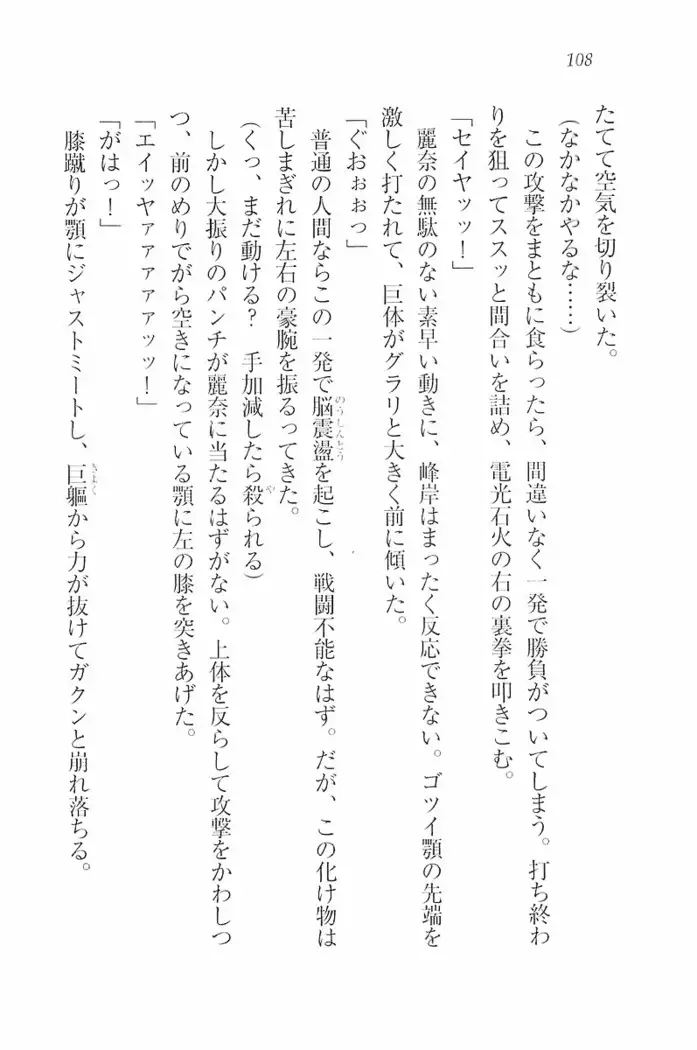 108
たてて空気を切り裂いた。
(なかなかやるな……)
この攻撃をまともに食らったら、間違いなく一発で勝負がついてしまう。打ち終わ
りを狙ってススッと間合いを詰め、電光石火の右の裏拳を叩きこむ。
「セイヤッッ！」
麗奈の無駄のない素早い動きに、峰岸はまったく反応できない。ゴツイ顎の先端を
激しく打たれて、巨体がグラリと大きく前に傾いた。
「ぐおぉぉっ」
普通の人間ならこの一発で脳震盪を起こし、戦闘不能なはず。だが、この化け物は
のうしんとう
苦しまぎれに左右の豪腕を振るってきた。
(くっ、まだ動ける？　手加減したら殺られる)
や
しかし大振りのパンチが麗奈に当たるはずがない。上体を反らして攻撃をかわしつ
つ、前のめりでがら空きになっている顎に左の膝を突きあげた。
「エイッヤァァァァァッッ！」
「がはっ！」
膝蹴りが顎にジャストミートし、巨軀から力が抜けてガクンと崩れ落ちる。
きよく